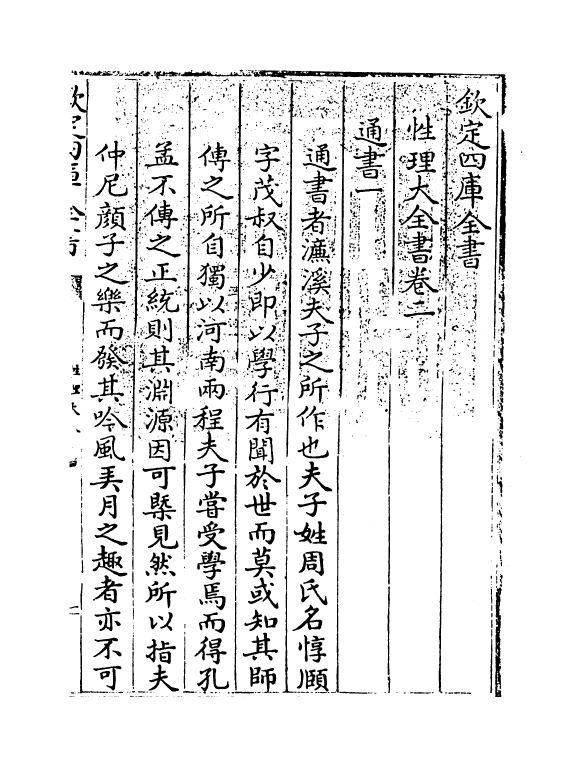 欽定四庫全書
性理大全書卷二
通書一
通書者濂溪夫子之所作也夫子姓周氏名惇頤
字茂叔自少即以學行有聞於世而莫或知其師
傳之所自獨以河南兩程夫子嘗受學焉而得孔
孟不傳之正統則其淵源因可槩見然所以指夫
仲尼顔子之樂而發其吟風弄月之趣者亦不可